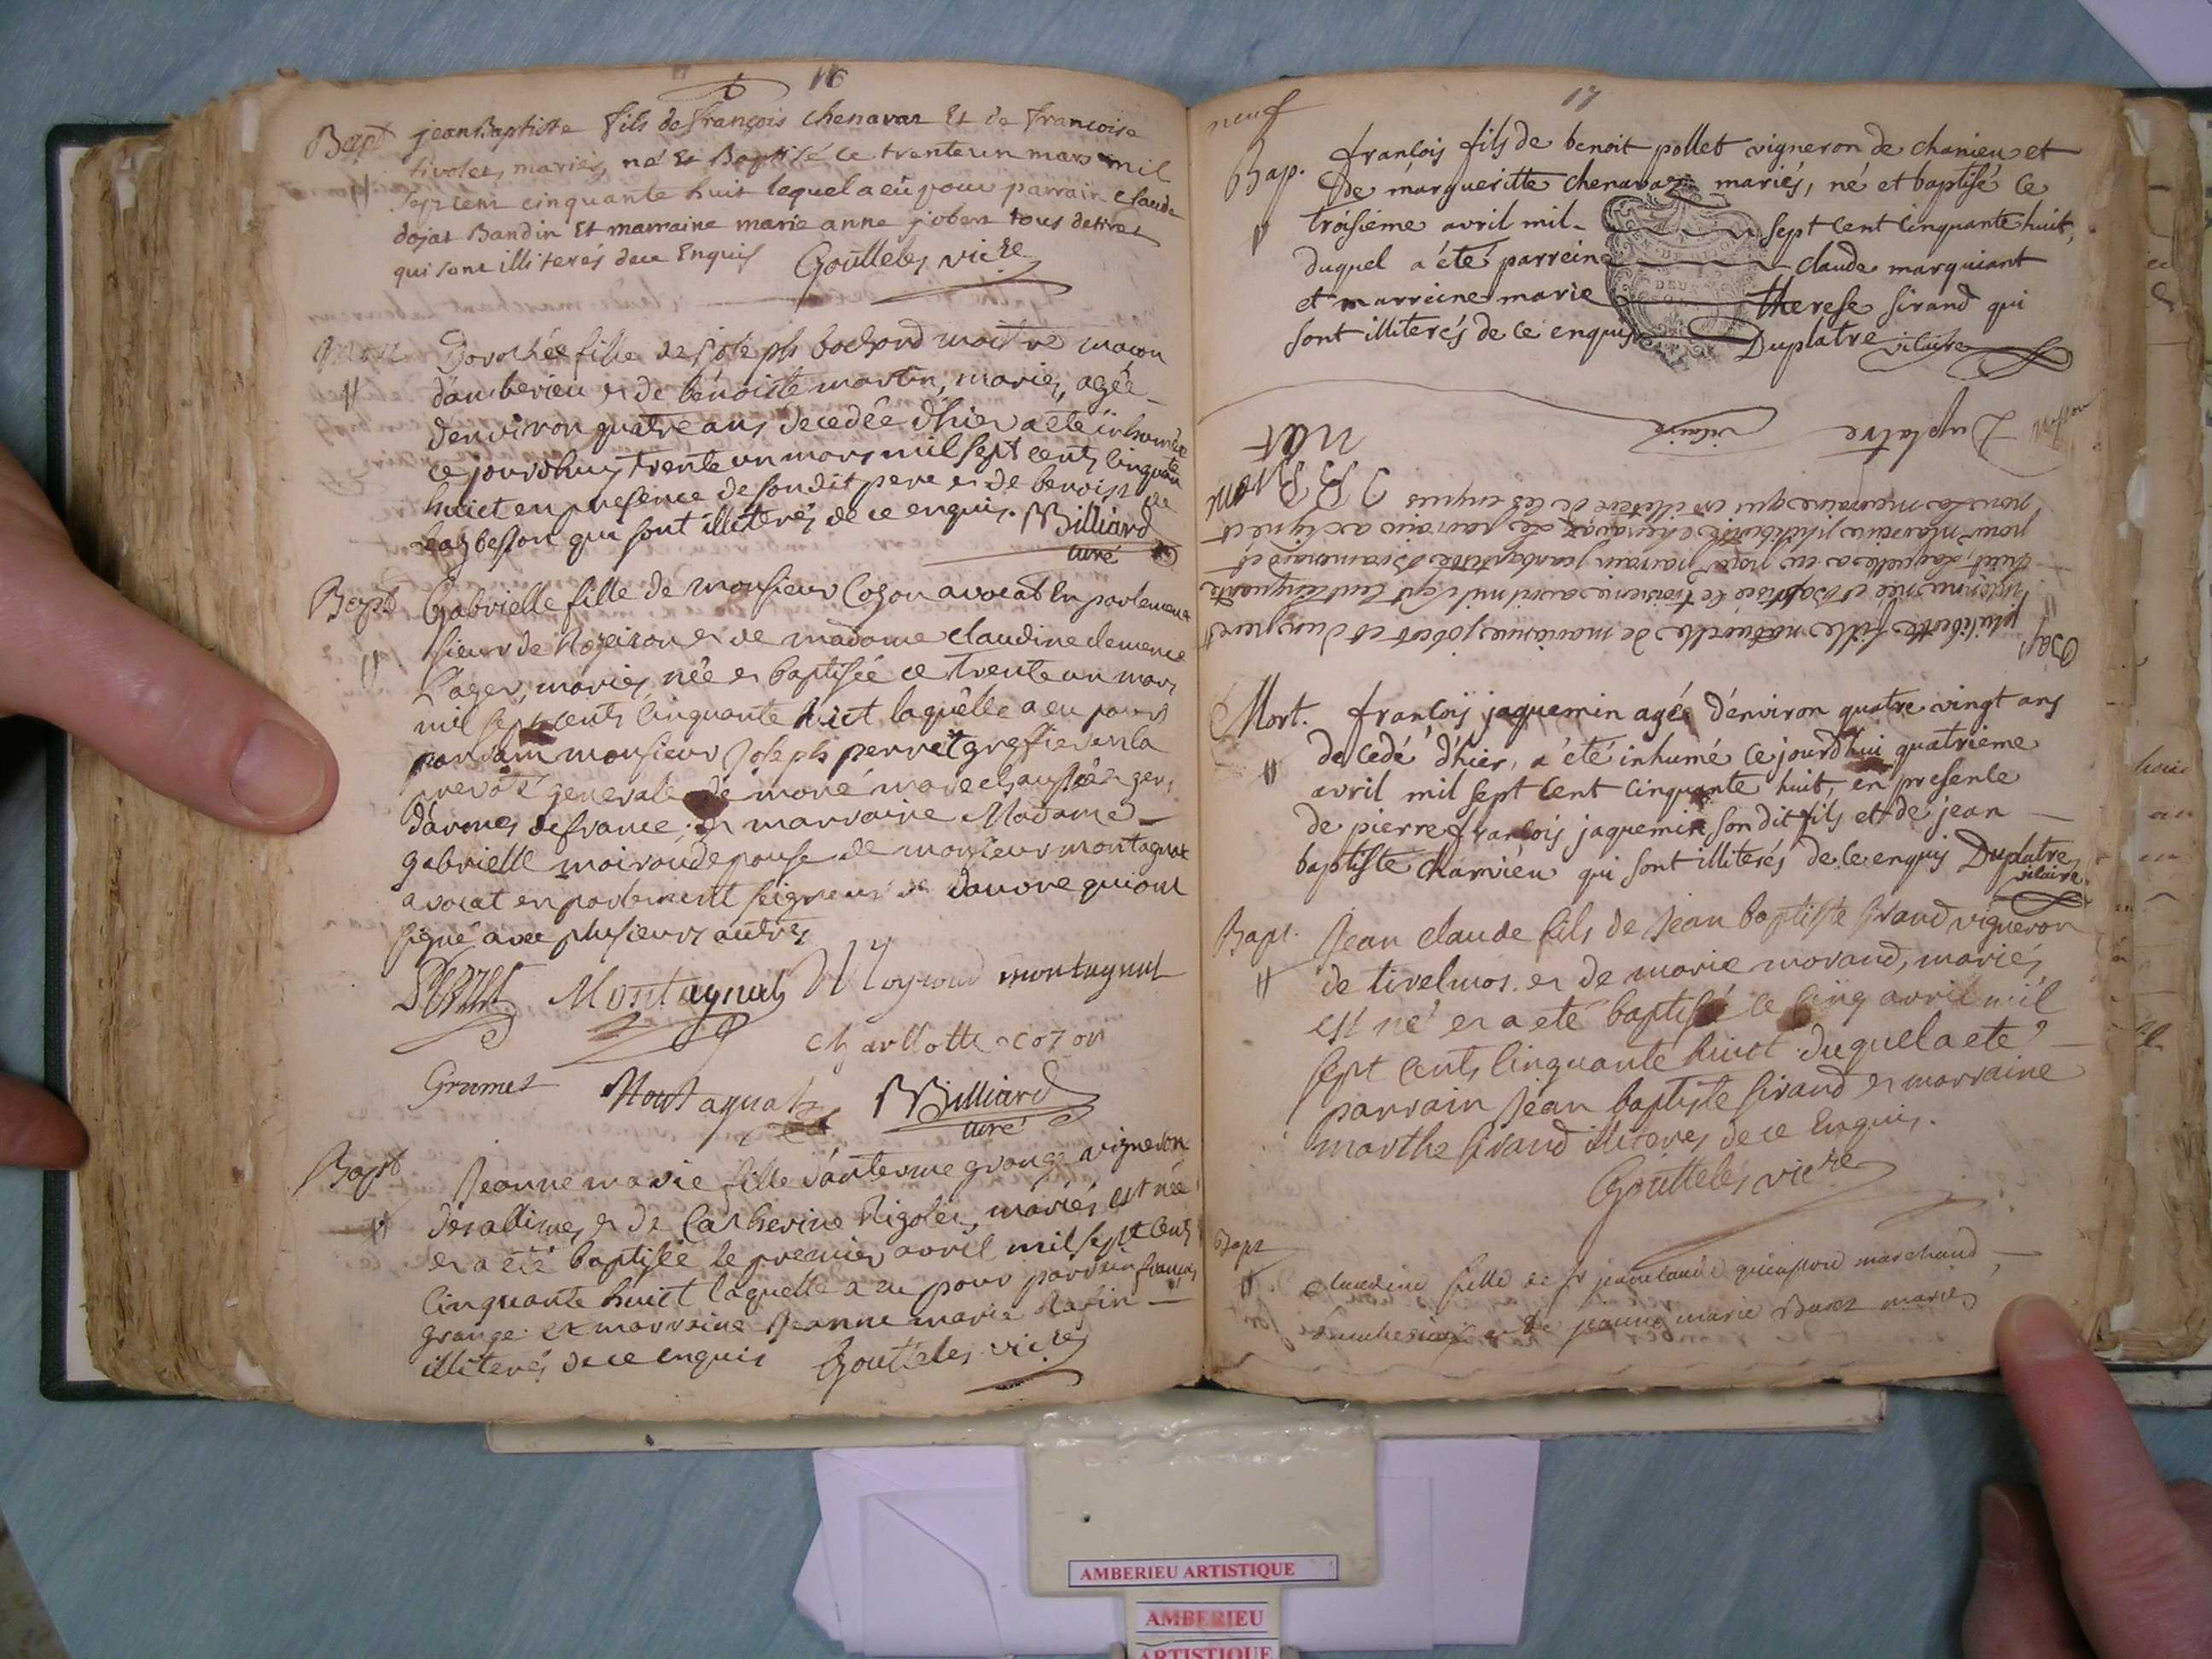 16
Bapt jean Baptiste fils de françois chenavar Et de francoise
tivolet, mariés, né Et Baptisé ce trente un mars mil
Sept cent cinquante huit lequel a eû pour parrain claude
dojat Bandin Et marraine marie anne jobert tous de
qui sont illiterés de ce Enquis Goutteles vicre
Mort Dorothée fille de joseph bochard maitre maçon
d'amberieu et de benoiste martin, mariés, agée
d'environ quatre ans decedée d'hier a eté inhumée
ce jourdhuy trente un mars mil sept cents cinquante
huict en presence de son dit pere et de benoist
besson qui sont illiterés de ce enquis. Billiard
curé
Bapt Gabrielle fille de monsieur Cozon avocat En parlement
sieur de et de madame claudine clemence
Lager, mariés, née et baptisée ce trente un mars
mil sept cents cinquante huict laquelle a eu pour
parrain monsieur Joseph perret greffier en la
prevôté generale de marechaussée gens
d'armes de france; et marraine Madame
gabrielle moiroud epouse de monsieur montagnat
avocat en parlement seigneur de qui ont
signé avec plusieurs autres
Perret Montagnat Moyroud montagnat
charllotte cozon
Gramet Montagnat Billiard
curé
Bapt Jeanne marie fille d'anterme grange vigneron
des allimes, et de Catherine Rigolet, mariés, est née
et a été baptisée le premier avril mil sept cents
cinquante huict laquelle a eu pour parrain françois
grange et marraine Jeanne marie Rafin
illiterés de ce enquis Goutteles vicre
17
neuf
Bap. françois fils de benoit pollet vigneron de chanieu et
de margueritte chenavaz mariés, né et baptisé ce
troisième avril mil sept cent cinquante huit,
duquel a été parrein claude marquiant
et marreine marie therese sirand qui
sont illiterés de ce enquis Duplatre vicaire
Bap philiberte fille naturelle de marianne jobert et d'un pere
inconnu née et baptisée le troisieme avril mil sept cent cinquante
huit, laquelle a eu pour parrain jeanbaptiste Bramerel et
pour marraine philiberte chenavaz Le parrain a signé et
non La marraine qui est illiterée de ce enquis J B Brame
rel
Duplatre vicaire
Mort. françois jaquemin agé d'environ quatre vingt ans
decedé d'hier, a été inhumé ce jourd'hui quatrieme
avril mil sept cent cinquante huit, en presence
de pierre françois jaquemin son dit fils et de jean
baptiste charvieu qui sont illiterés de ce enquis Duplatre
vicaire
Bapt. Jean claude fils de Jean baptiste sirand vigneron
de tiret et de marie morand, mariés,
est né et a eté baptisé ce cinq avril mil
sept cents cinquante huict duquel a eté
parrain Jean baptiste sirand et marraine
marthe sirand illiterés de ce Enquis.
Goutteles vicre
Bapt
claudine fille de sr jean claude marchand
et de jeanne marie mariés
AMBERIEU ARTISTIQUE
AMBERIEU
ARTISTIQUE